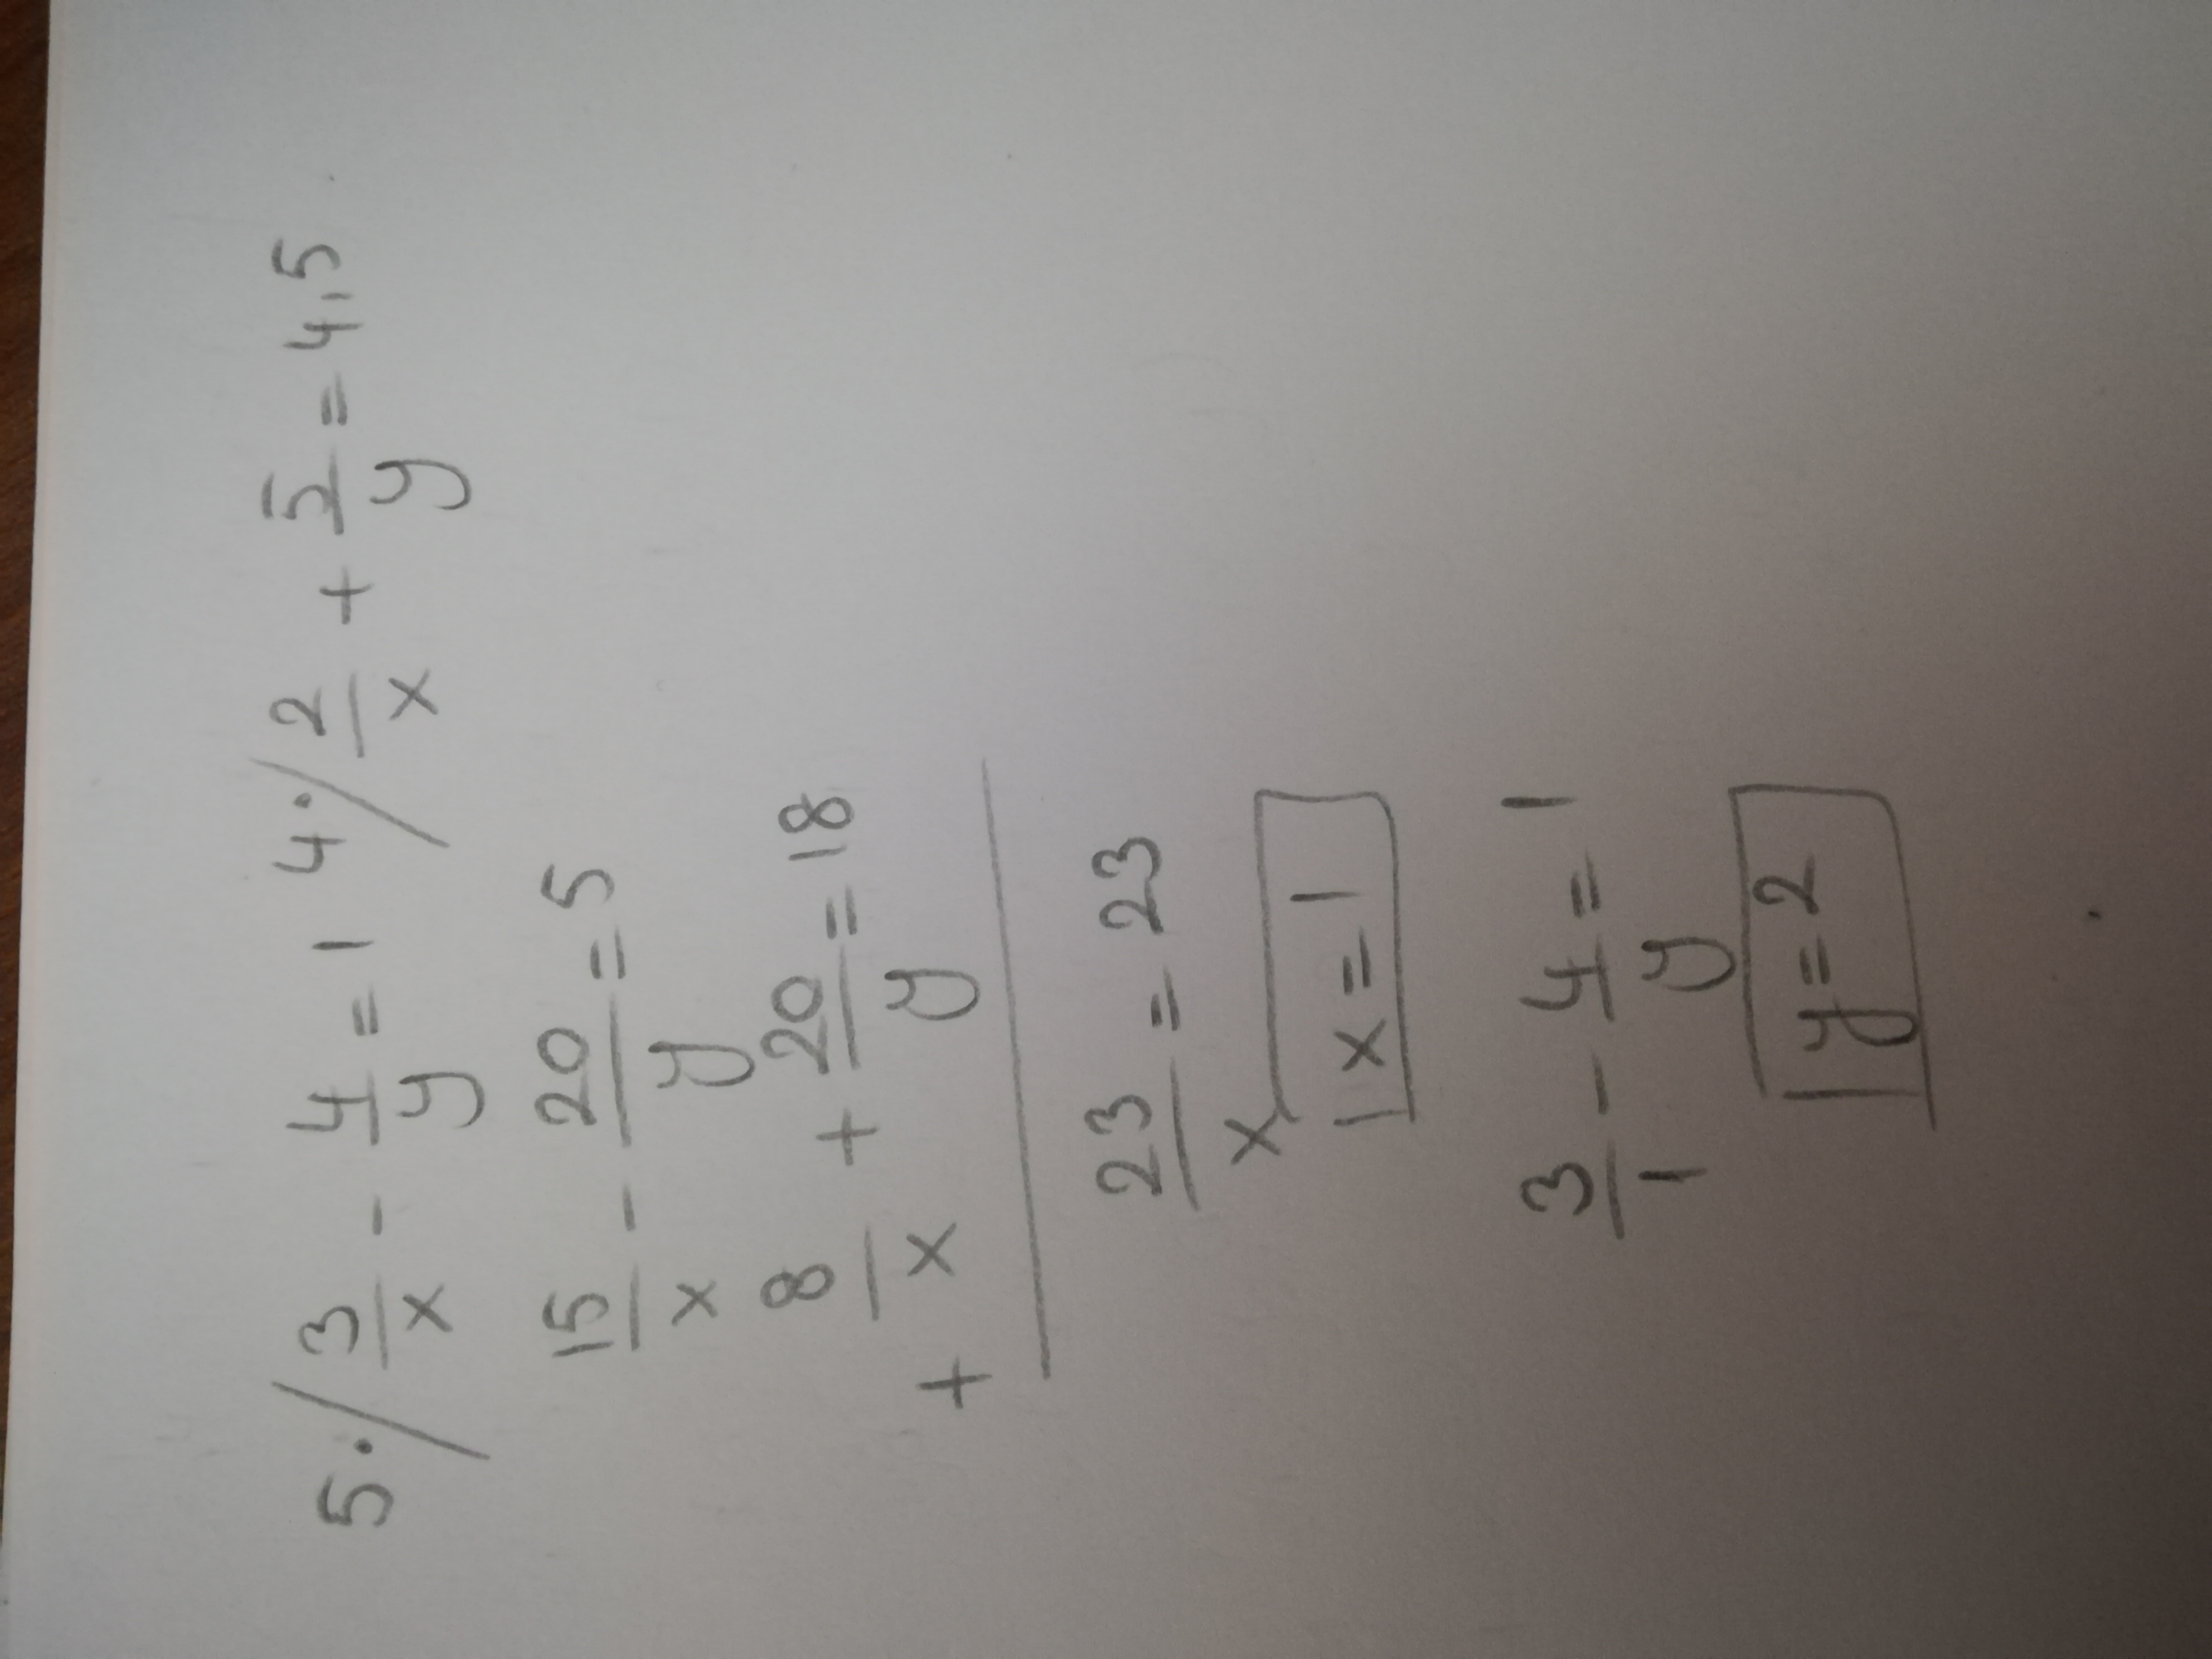 5·/ 3/x - 4/y = 1 4·/ 2/x + 5/y = 4,5
15/x - 20/y = 5
+ 8/x + 20/y = 18
23/x = 23
x = 1
3/1 - 4/y = 1
y = 2